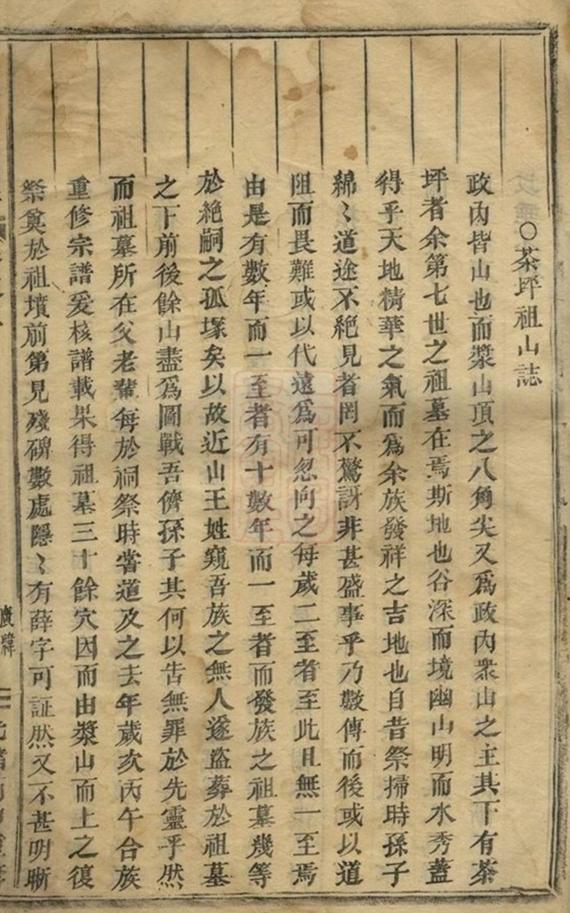 ○茶坪祖山誌
政內皆山也而槳山頂之八角尖又爲政內衆山之主其下有茶
坪者余第七世之祖墓在焉斯地也谷深而境幽山明而水秀蓋
得乎天地精華之氣而爲余族發祥之吉地也自昔祭掃時孫子
綿〻道途不絕見者罔不驚訝非甚盛事乎乃數傳而後或以道
阻而畏難或以代遠爲可忽向之每歲二至者至此且無一至焉
由是有數年而一至者有十數年而一至者而發族之祖墓幾等
於絕嗣之孤塚矣以故近山王姓窺吾族之無人遂盜葬於祖墓
之下前後餘山盡爲圖戰吾儕孫子其何以告無罪於先靈乎然
而祖墓所在父老輩每於祠祭時嘗道及之去年歲次丙午合族
重修宗譜爰核譜載果得祖墓三十餘穴因而由槳山而上之復
祭奠於祖墳前第見殘碑數處隱〻有薛字可証然又不甚明晰